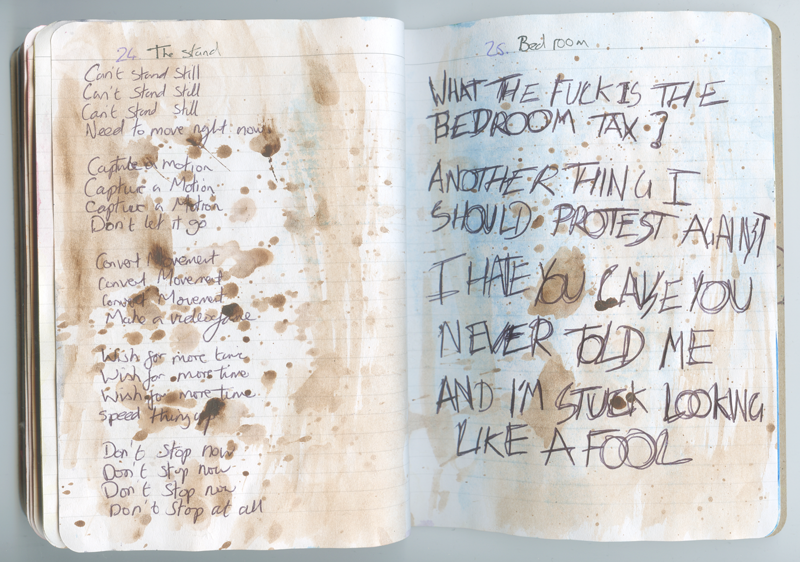 24 The stand
Can't stand still
Can't stand still
Can't stand still
Need to move right now
Capture a motion
Capture a Motion
Capture a Motion
Don't let it go
Convert Movement
Convert Movement
Convert Movement
Make a videogame
Wish for more time
Wish for more time
Wish for more time
Speed things up
Don't stop now
Don't stop now
Don't stop now
Don't stop at all
25. Bedroom
WHAT THE FUCK IS THE
BEDROOM TAX?
ANOTHER THING I
SHOULD PROTEST AGAINST
I HATE YOU CAUSE YOU
NEVER TOLD ME
AND I'M STUCK LOOKING
LIKE A FOOL